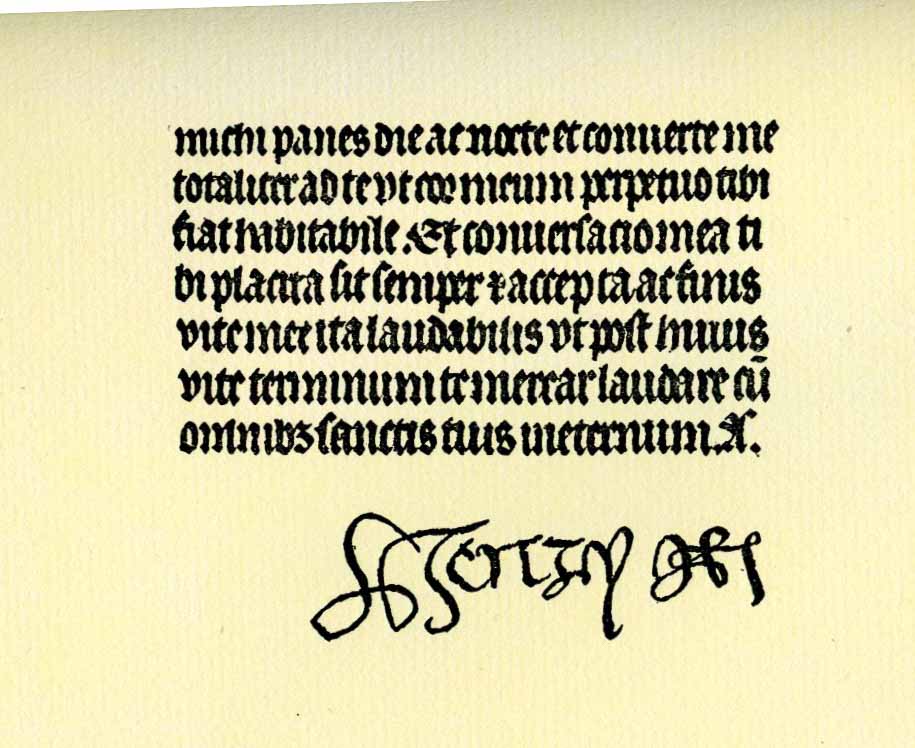 michi panes die ac nocte et conuerte me
totaliter ad te vt cor meum perpetuo tibi
fiat habitabile . Et conuersacio mea ti
bi placita sit semper ⁊ accepta ac finis
vite mee ita laudabilis vt post huius
vite terminum te merear laudare cū
omnibꝫ sanctis tuis ineternum . A .